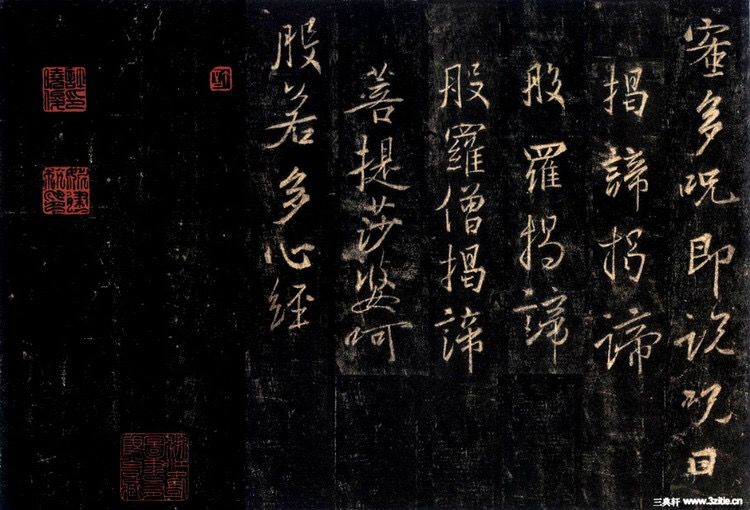 蜜多呪即説呪曰
揭諦揭諦
般羅揭諦
般羅僧揭諦
菩提莎婆呵
般若多心經
三典轩 www.3zitie.cn